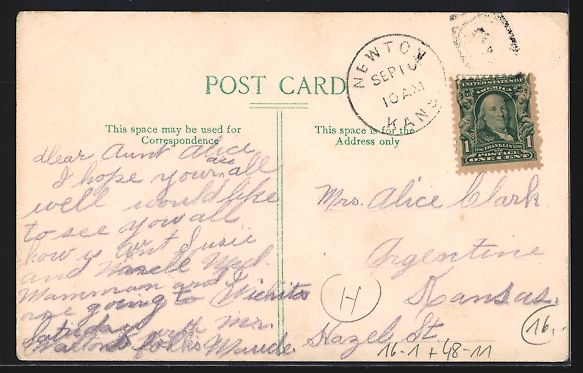 POST CARD
NEWTON
SEP 10
10 AM
KANS
UNITED STATES OF
AMERICA
FRANKLIN
POSTAGE
1 ONE CENT 1
This space may be used for
Correspondence
This space is for the
Address only
Dear Aunt Alice
I hope your are all
well would like
to see you all
how is Ant Susie
and Uncle
Mamman and I
are going to Wichita
Saturday with Mr.
Waltons folks Maude
Mrs. Alice Clark
Argentine
Kansas.
Hazel St.
H
16.-
16-1+48-11